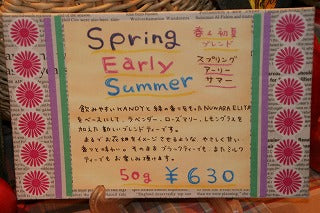 Spring
Early
Summer
春&初夏
ブレンド
スプリング
アーリー
サマー
飲みやすいKANDYと緑の香りをもったNUWARA ELIYA
をベースにして、ラベンダー、ローズマリー、レモングラスを
加えた新しいブレンドティーです。
まるでお花畑をイメージできるような、やさしくて甘い
香りと味わい。そのままブラックティーでも、またミルク
ティーでもお楽しみ頂けます。
50g ¥630